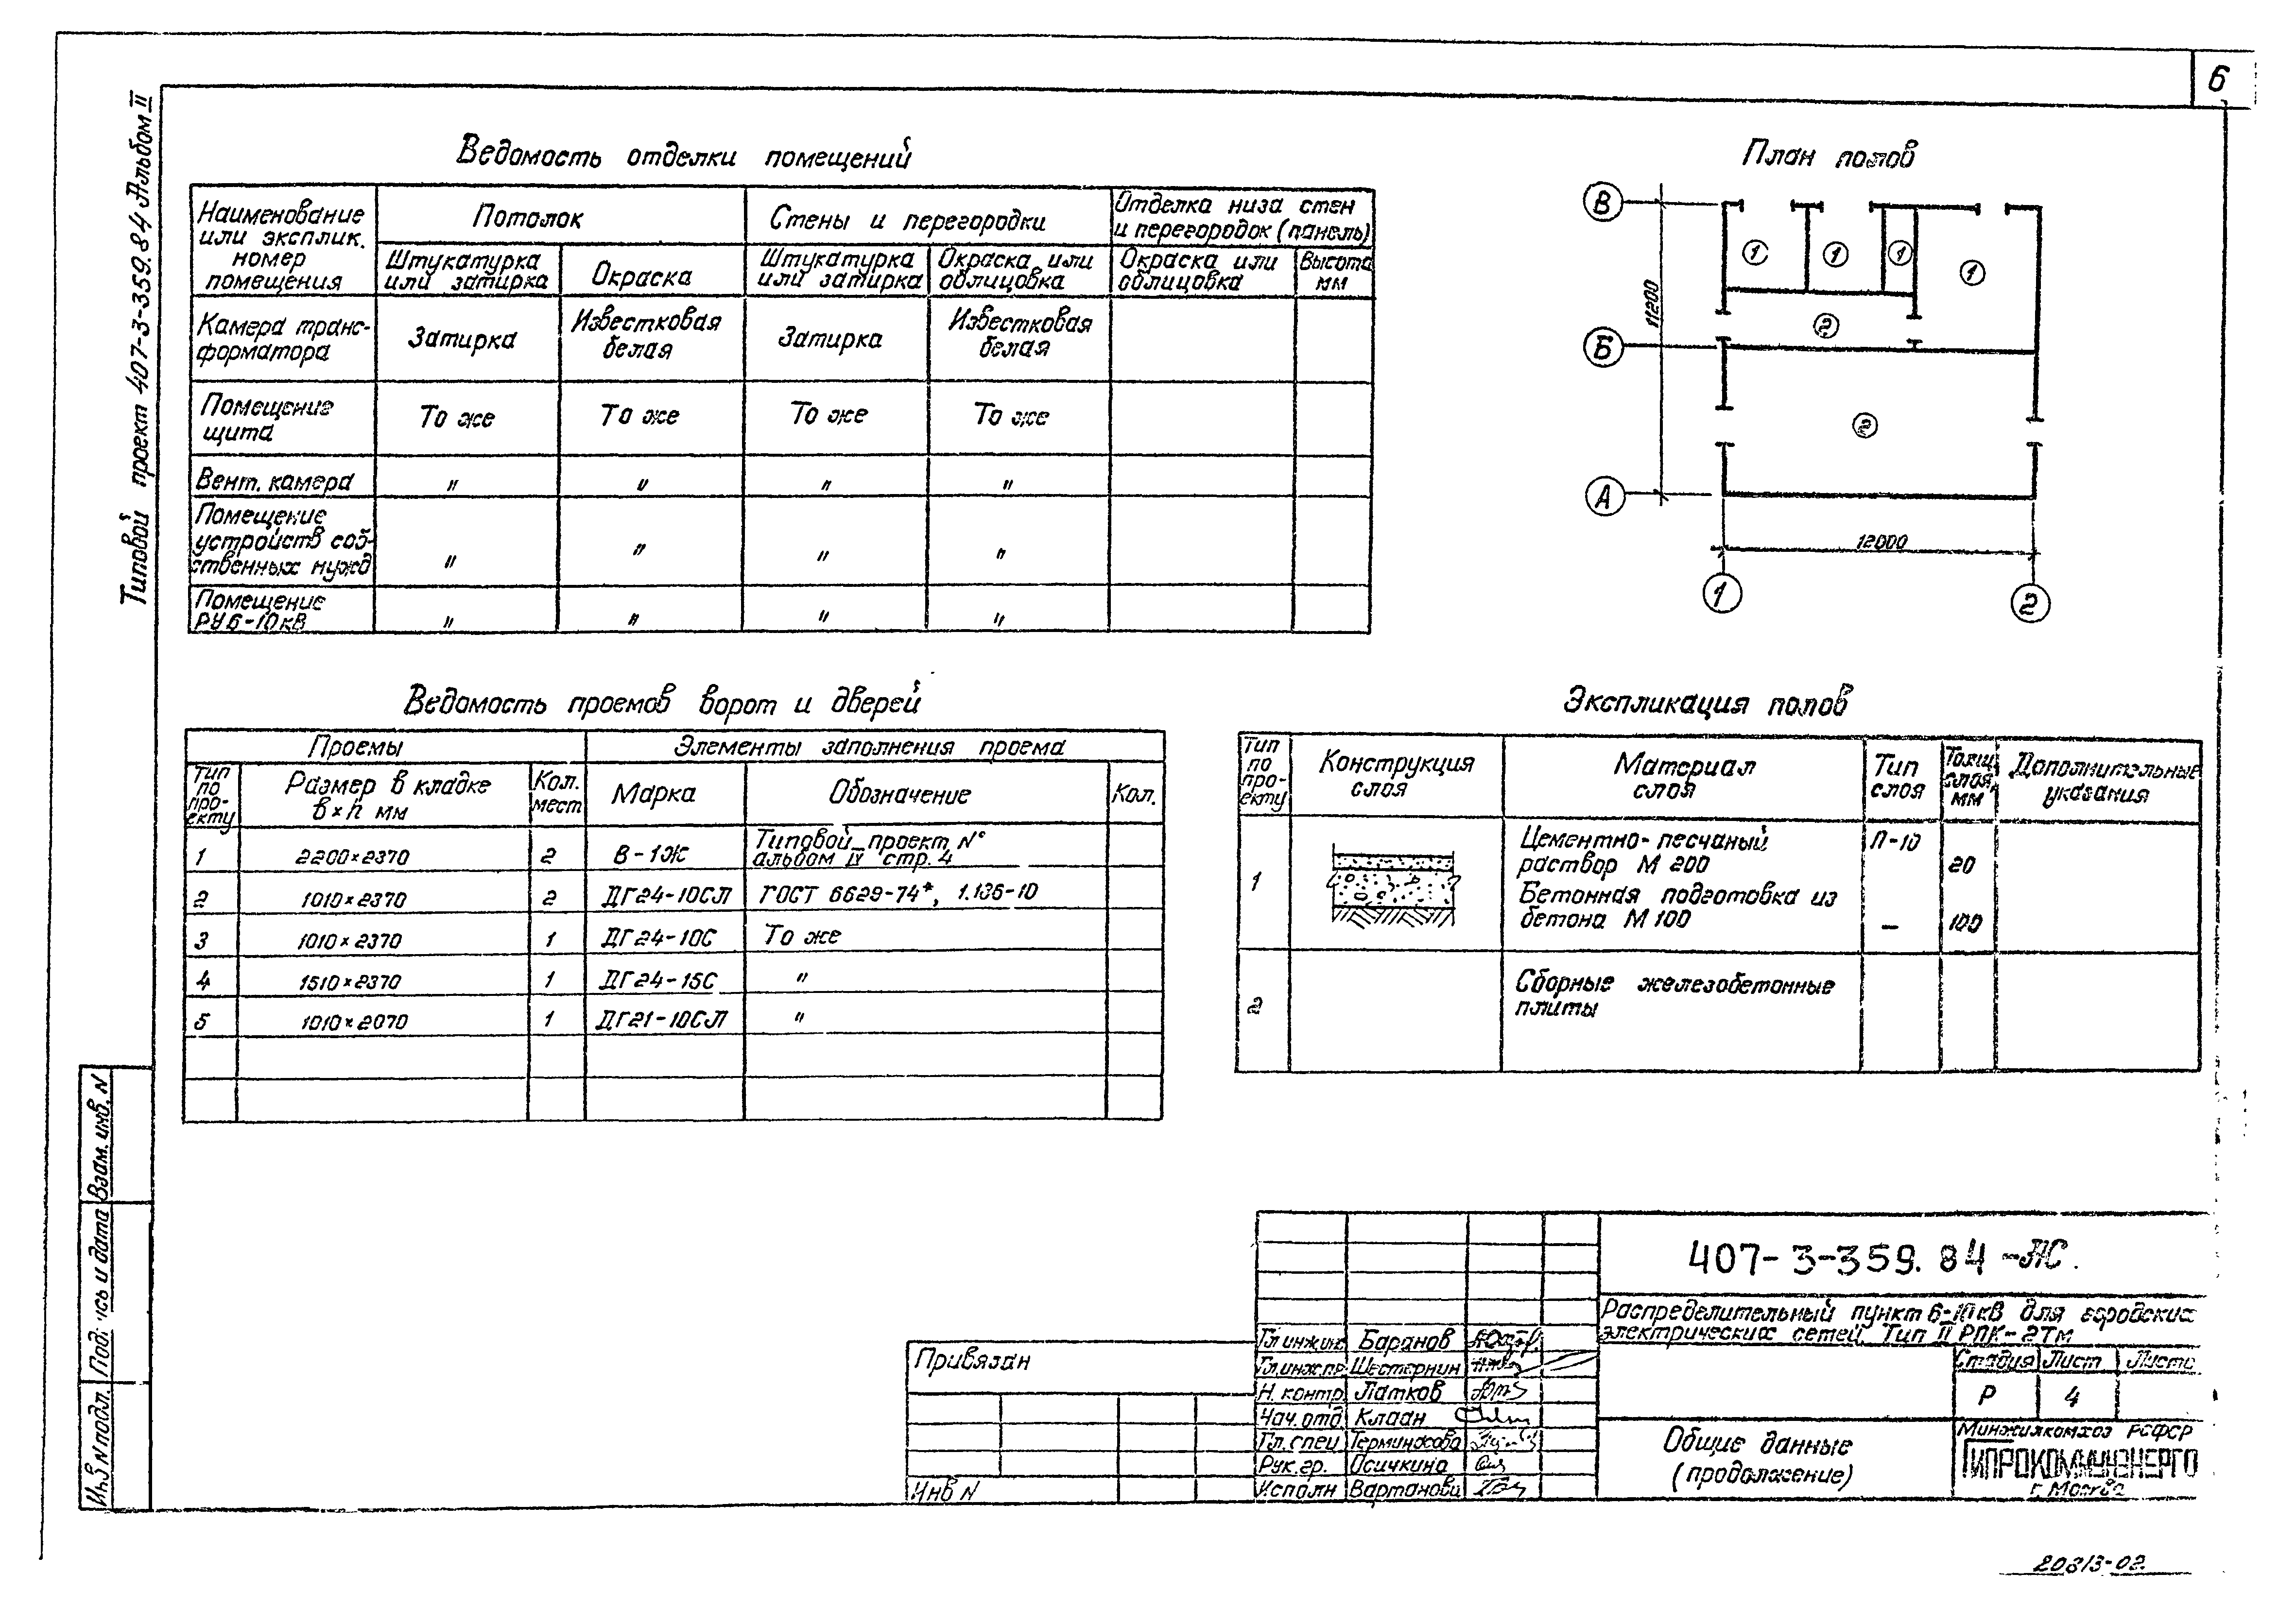 6
Типовой проект 407-3-359.84 Альбом II
Ведомость отделки помещений
Наименование
или эксплик.
номер
помещения
Потолок
Стены и перегородки
Отделка низа стен
и перегородок (панель)
Штукатурка
или затирка
Окраска
Штукатурка
или затирка
Окраска или
облицовка
Окраска или
облицовка
Высота
мм
Камера транс-
форматора
Затирка
Известковая
белая
Затирка
Известковая
белая
Помещение
щита
То же
То же
То же
То же
Вент. камера
" " " "
Помещение
устройств соб-
ственных нужд
" " " "
Помещение
РУ6-10кВ
" " " "
План полов
В
Б
А
11200
1 1 1 1
2
2
12000
1 2
Ведомость проемов ворот и дверей
Проемы
Элементы заполнения проема
Тип
по
про-
екту
Размер в кладке
в×h мм
Кол.
мест
Марка
Обозначение
Кол.
1 2200×2370 2 В-1Ж Типовой проект №
альбом IV стр. 4
2 1010×2370 2 ДГ24-10СЛ ГОСТ 6629-74*, 1.136-10
3 1010×2370 1 ДГ24-10С То же
4 1510×2370 1 ДГ24-15С "
5 1010×2070 1 ДГ21-10СЛ "
Экспликация полов
Тип
по
про-
екту
Конструкция
слоя
Материал
слоя
Тип
слоя
Толщ.
слоя,
мм
Дополнительные
указания
1
Цементно-песчаный П-10
раствор М 200 20
Бетонная подготовка из
бетона М 100 — 100
2
Сборные железобетонные
плиты
Взам. инв. N
Подпись и дата
Инв N подл.
Привязан
Инв N
Гл инжин. Баранов
Гл.инж.пр. Шестернин
Н. контр. Латков
Нач. отд. Клаан
Гл. спец
Рук. гр. Осичкина
Исполн
407-3-359.84-АС.
Распределительный пункт 6-10кВ для городских
электрических сетей. Тип II РПК-2Тм
Стадия Лист Листо
Р 4
Общие данные
(продолжение)
Минжилкомхоз РСФСР
ГИПРОКОММУНЭНЕРГО
г. Москва
20813-02